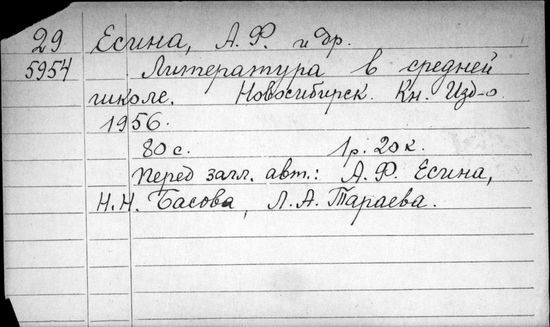 29 Есина, А.Ф. и др.
5954 Литература в средней
школе. Новосибирск. Кн. Изд-о.
1956.
80 с. 1р. 20 к.
Перед загл. авт.: А.Ф. Есина,
Н.Н. Басова, Л.А. Тараева.